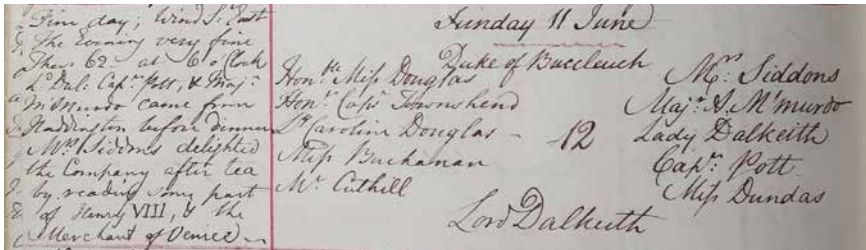 Fine day; Wind S: East
The Evening very fine
Ther. 62 at 6 o Clock
Ld. Dal: Capn. Pott, & Majr.
McMurdo came from
Haddington before dinner
Mrs. Siddons delighted
the Company after tea
by reading some part
of Henry VIII, & the
Merchant of Venice
Sunday 11 June
Duke of Buccleuch
Honble Miss Douglas
Honl. Capt. Townshend
Ly Caroline Douglas
Miss Buchanan
Mr. Cuthill
12
Mrs. Siddons
Majr. A. Mcmurdo
Lady Dalkeith
Capn. Pott
Miss Dundas
Lord Dalkeith